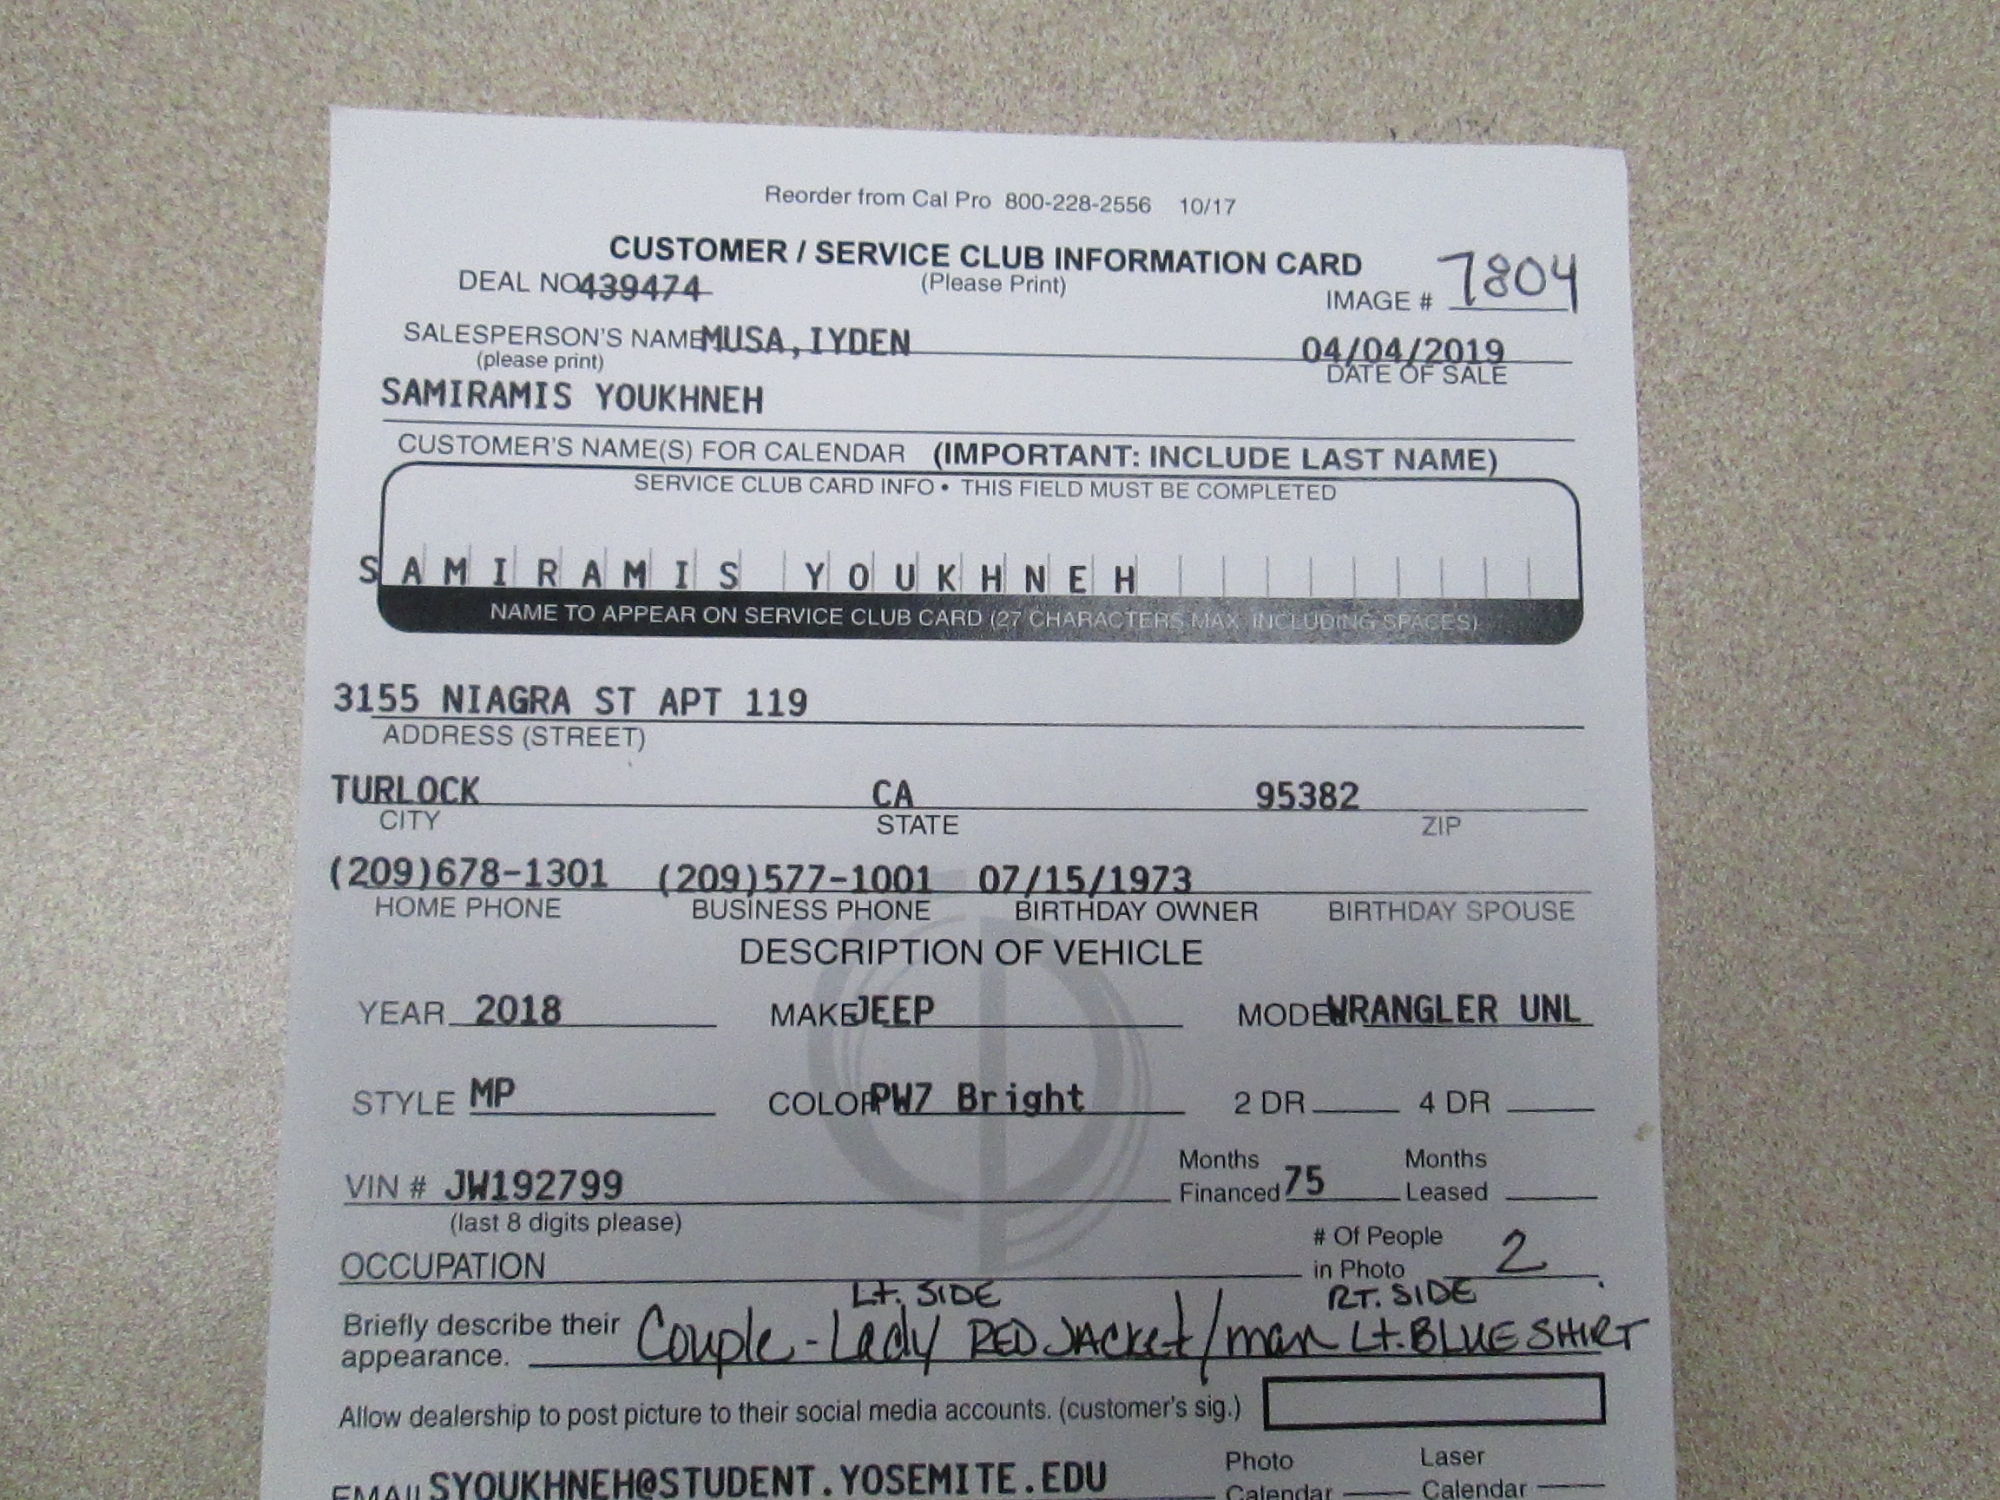 Reorder from Cal Pro 800-228-2556 10/17
CUSTOMER / SERVICE CLUB INFORMATION CARD
DEAL NO 439474 (Please Print) IMAGE # 7804
SALESPERSON'S NAME MUSA, IYDEN 04/04/2019
(please print) DATE OF SALE
SAMIRAMIS YOUKHNEH
CUSTOMER'S NAME(S) FOR CALENDAR (IMPORTANT: INCLUDE LAST NAME)
SERVICE CLUB CARD INFO • THIS FIELD MUST BE COMPLETED
SAMIRAMIS YOUKHNEH
NAME TO APPEAR ON SERVICE CLUB CARD (27 CHARACTERS MAX INCLUDING SPACES)
3155 NIAGRA ST APT 119
ADDRESS (STREET)
TURLOCK CA 95382
CITY STATE ZIP
(209)678-1301 (209)577-1001 07/15/1973
HOME PHONE BUSINESS PHONE BIRTHDAY OWNER BIRTHDAY SPOUSE
DESCRIPTION OF VEHICLE
YEAR 2018 MAKE JEEP MODE WRANGLER UNL
STYLE MP COLOR PW7 Bright 2 DR 4 DR
Months Months
VIN # JW192799 Financed 75 Leased
(last 8 digits please)
# Of People
OCCUPATION in Photo 2
Lt. SIDE RT. SIDE
Briefly describe their Couple - Lady RED JACket / man Lt. BLUE SHIRT
appearance.
Allow dealership to post picture to their social media accounts. (customer's sig.)
Photo Laser
EMAIL SYOUKHNEH@STUDENT.YOSEMITE.EDU Calendar Calendar